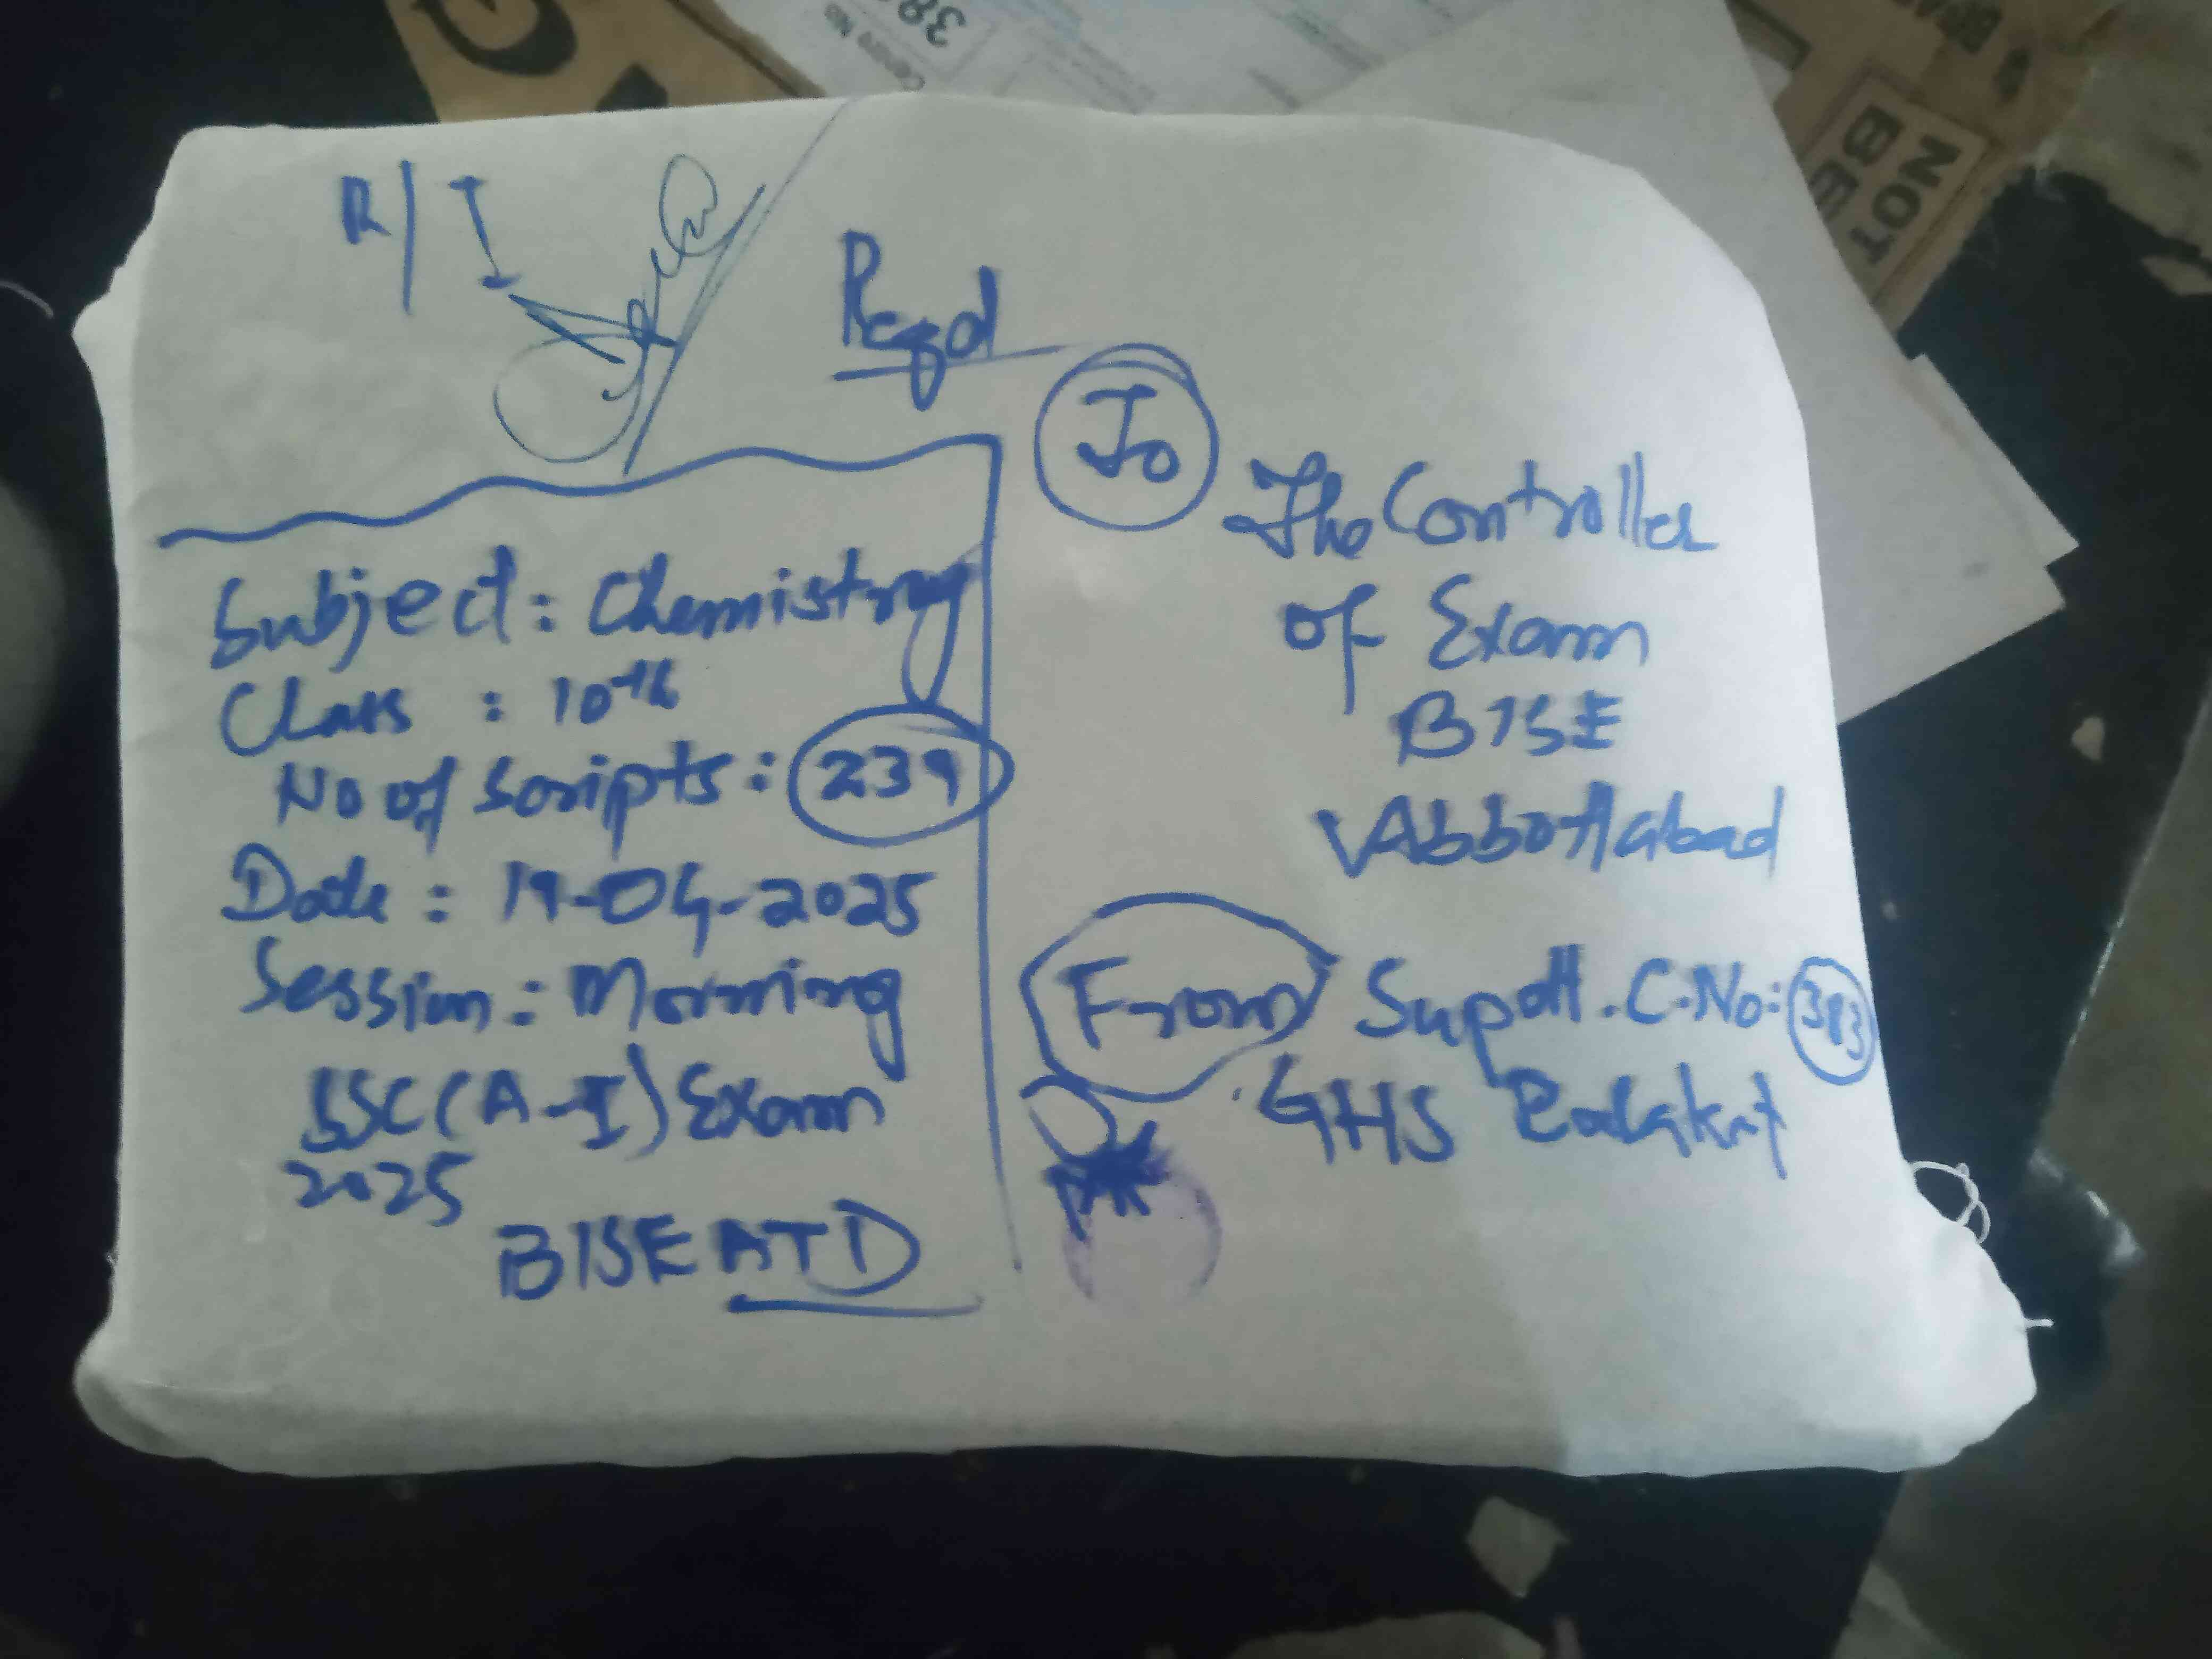 R/I
Regd
To
The Controller
of Exam
BISE
Abbottabad
From Supdtt. C.No: 383
GHS
Subject: Chemistry
Class : 10th
No of Scripts: 239
Date : 19-04-2025
Session: Morning
SSC(A-I) Exam
2025
BISE ATD
Centre No
38
NOT
BE